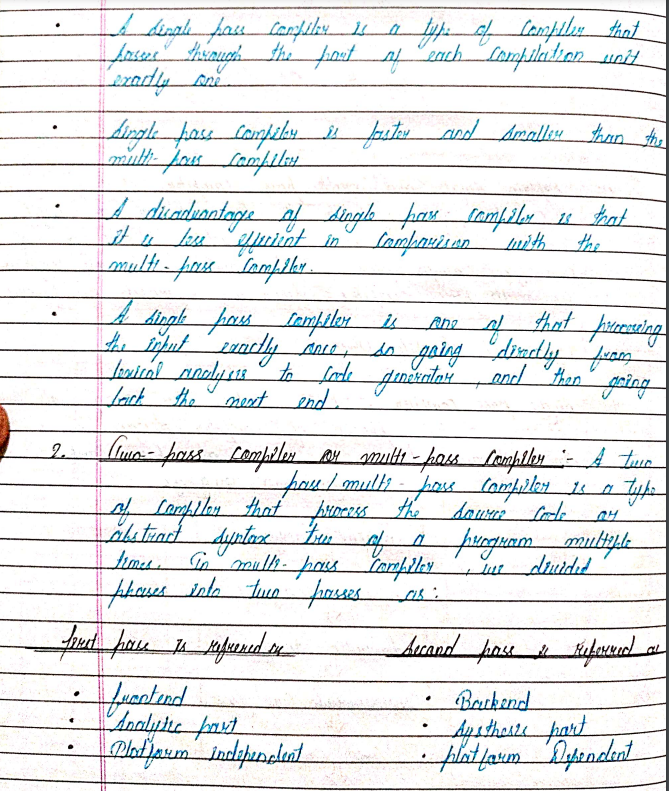 • A single pass compiler is a type of compiler that
passes through the part of each compilation unit
exactly one.
• Single pass compiler is faster and smaller than the
multi-pass compiler
• A disadvantage of single pass compiler is that
it is less efficient in comparison with the
multi-pass compiler.
• A single pass compiler is one of that processing
the input exactly once, so going directly from
lexical analysis to code generator, and then going
back the next end.
2. Two-pass compiler or multi-pass compiler :- A two
pass/multi-pass compiler is a type
of compiler that process the source code or
abstract syntax tree of a program multiple
times. In multi-pass compiler, we divided
phases into two passes as:
first pass is refrered as Second pass is referred as
• frontend • Backend
• Analytic part • Systhesis part
• Platform independent • platform Dependent